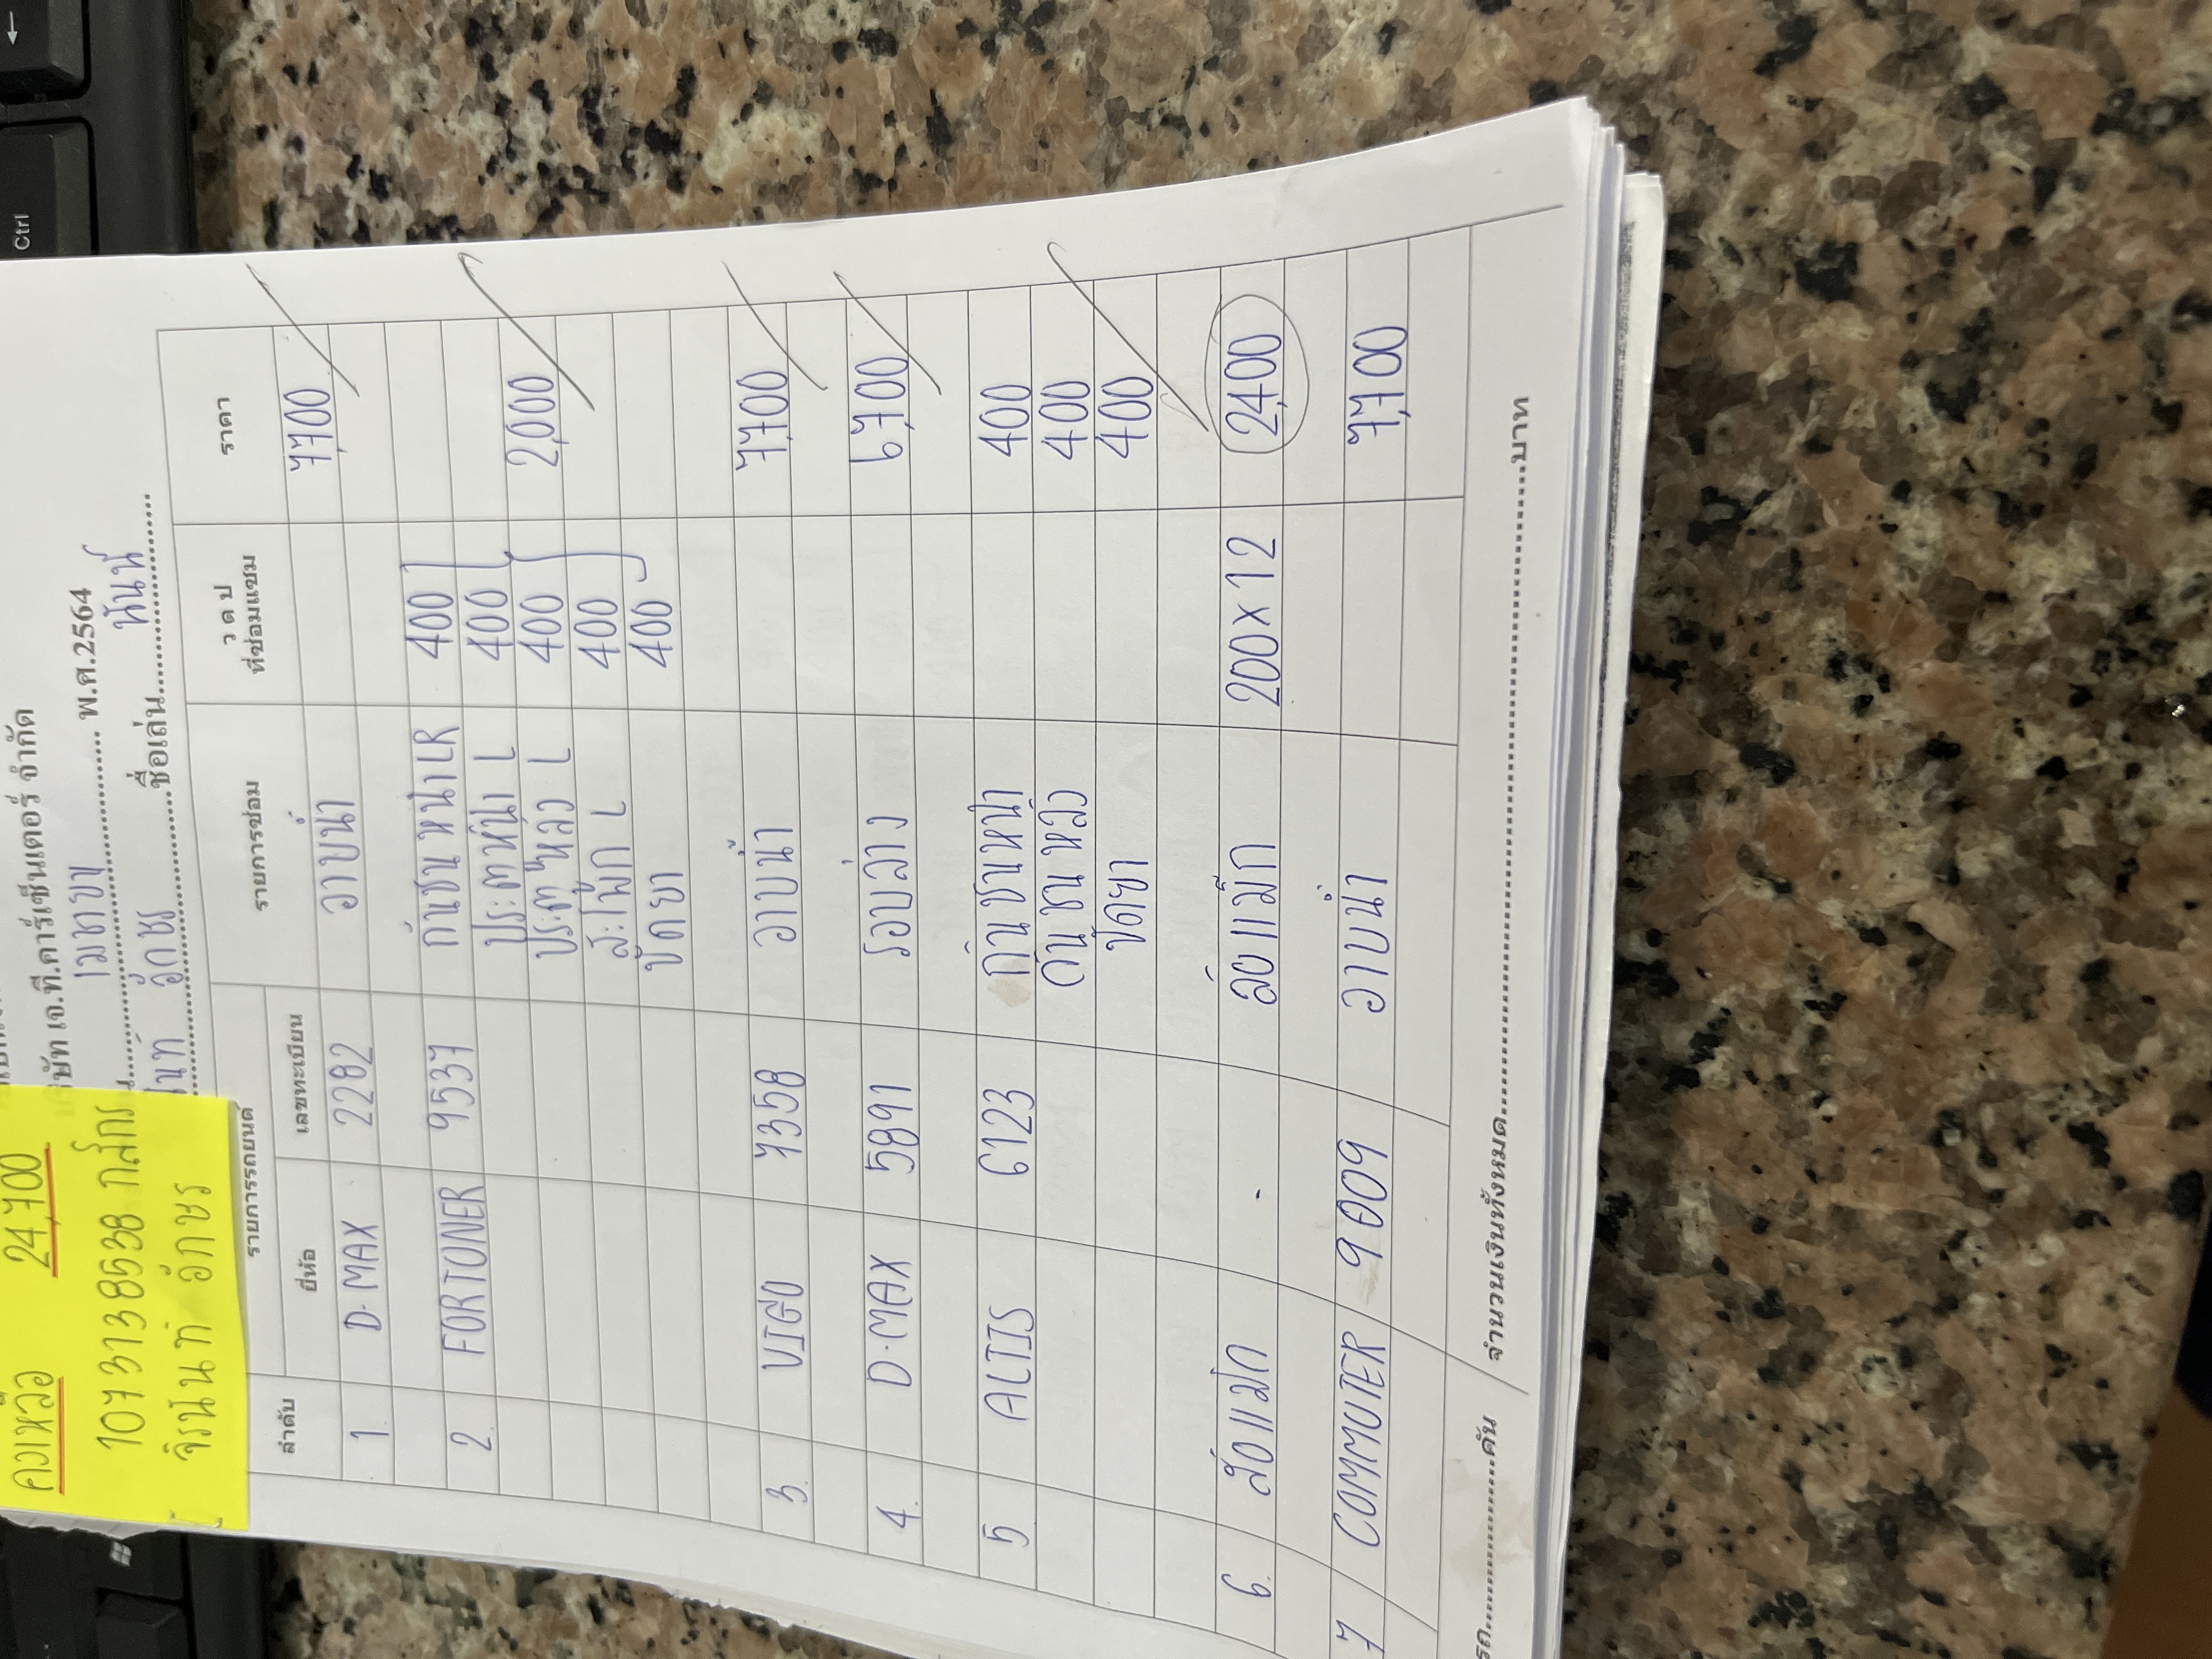 คงเหลือ 24,700
1073138538 กสิกร
จิรนันท์ อักษร
บริษัท เจ.ที.คาร์เซ็นเตอร์ จำกัด
เมษายน พ.ศ.2564
อักษร ชื่อเล่น นันท์
ลำดับ รายการรถยนต์ รายการซ่อม ว ด ป ที่ซ่อมแซม ราคา
ยี่ห้อ เลขทะเบียน
1. D-MAX 2282 อาบน้ำ 7,700
2. FORTUNER 9537 กันชนหน้า LR 400
ประตูหน้า L 400
ประตูหลัง L 400 2,000
สะโพก L 400
ปัดยา 400
3. VIGO 7358 อาบน้ำ 7,700
4. D-MAX 5891 รอบล่าง 6,700
5 ALTIS 6123 กันชนหน้า 400
กันชนหลัง 400
ปัดยา 400
6. ล้อแม็ก - ล้อแม็ก 200x12 2,400
7 COMMUTER 9009 อาบน้ำ 7,700
รถ..............คัน / จำนวนเงินทั้งหมด..............บาท
Ctrl
←